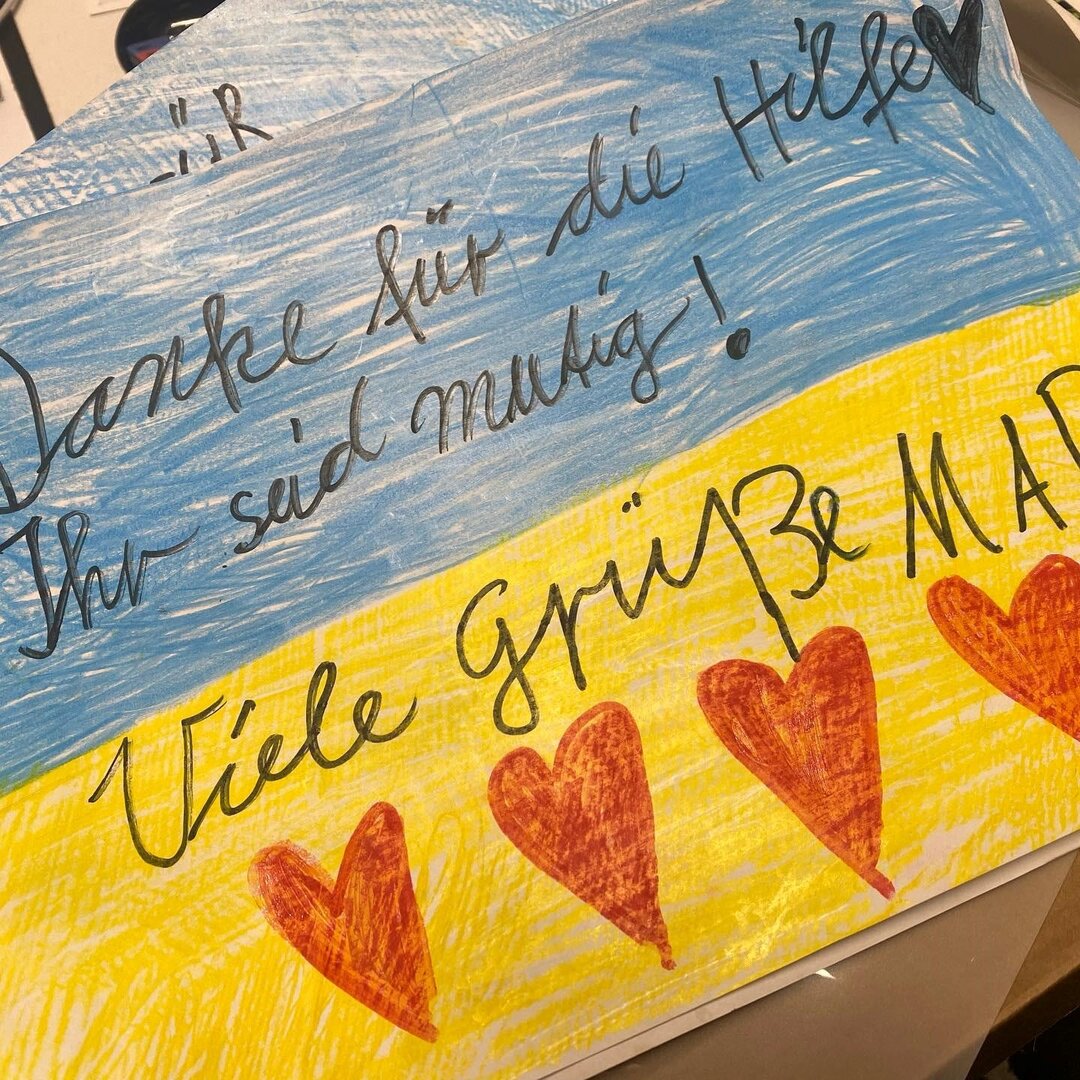 ÜR
Danke für die Hilfe
Ihr seid mutig!
Viele Grüße MAD